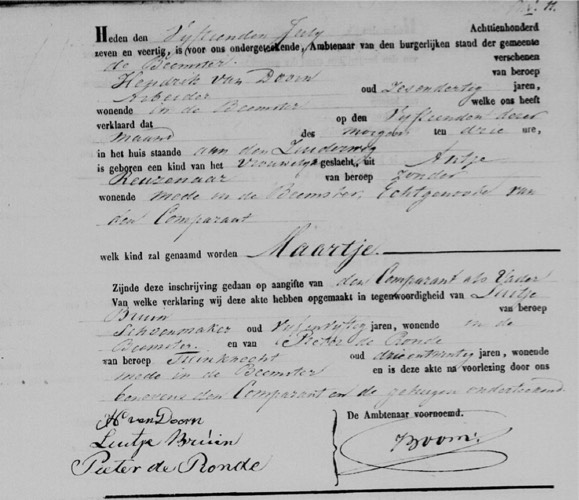 Heden den Vyftienden July Achttienhonderd
zeven en veertig, is voor ons ondergeteekende, Ambtenaar van den burgerlijken stand der gemeente
de Beemster verschenen
Hendrik van Doorn van beroep
Arbeider oud Zesendertig jaren,
wonende in de Beemster welke ons heeft
verklaard dat op den Vyftienden dezer
maand des morgens ten drie ure,
in het huis staande aan den Zuiderweg
is geboren een kind van het vrouwelyk geslacht, uit Antje
Keuzenaar van beroep zonder
wonende mede in de Beemster, Echtgenoote van
den Comparant
welk kind zal genaamd worden Maartje.
Zijnde deze inschrijving gedaan op aangifte van den Comparant als Vader
Van welke verklaring wij deze akte hebben opgemaakt in tegenwoordigheid van Luitje
Bruin van beroep
Schoenmaker oud vyfenvyftig jaren, wonende in de
Beemster. en van Pieter de Ronde
van beroep Tuinknecht oud drieentwintig jaren, wonende
mede in de Beemster en is deze akte na voorlezing door ons
benevens den Comparant en de getuigen onderteekend
H van Doorn
Luitje Bruin
Pieter de Ronde
De Ambtenaar voornoemd.
Boom.